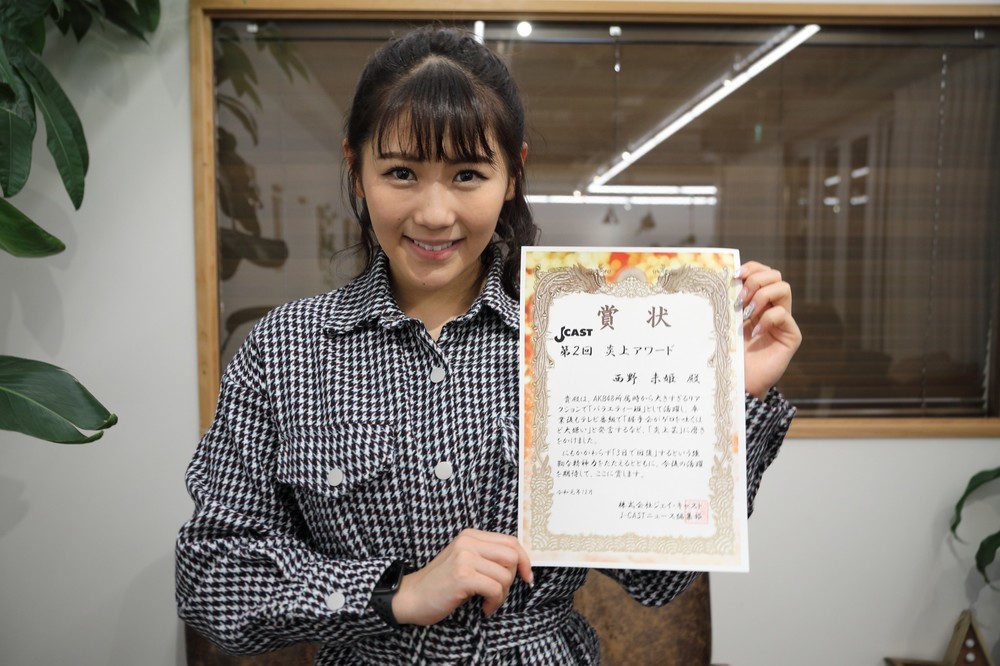 賞状
J CAST
第2回 炎上アワード
西野 未姫 殿
貴殿は、AKB48所属時から大きすぎるリア
クションで「バラエティー班」として活躍し、卒
業後もテレビ番組で「握手会がゲロを吐くほ
ど大嫌い」と発言するなど、「炎上芸」に磨き
をかけました。
にもかかわらず「3日で回復」するという強
靭な精神力をたたえるとともに、今後の活躍
を期待して、ここに賞します。
令和元年12月
株式会社ジェイ・キャスト
J-CASTニュース編集部